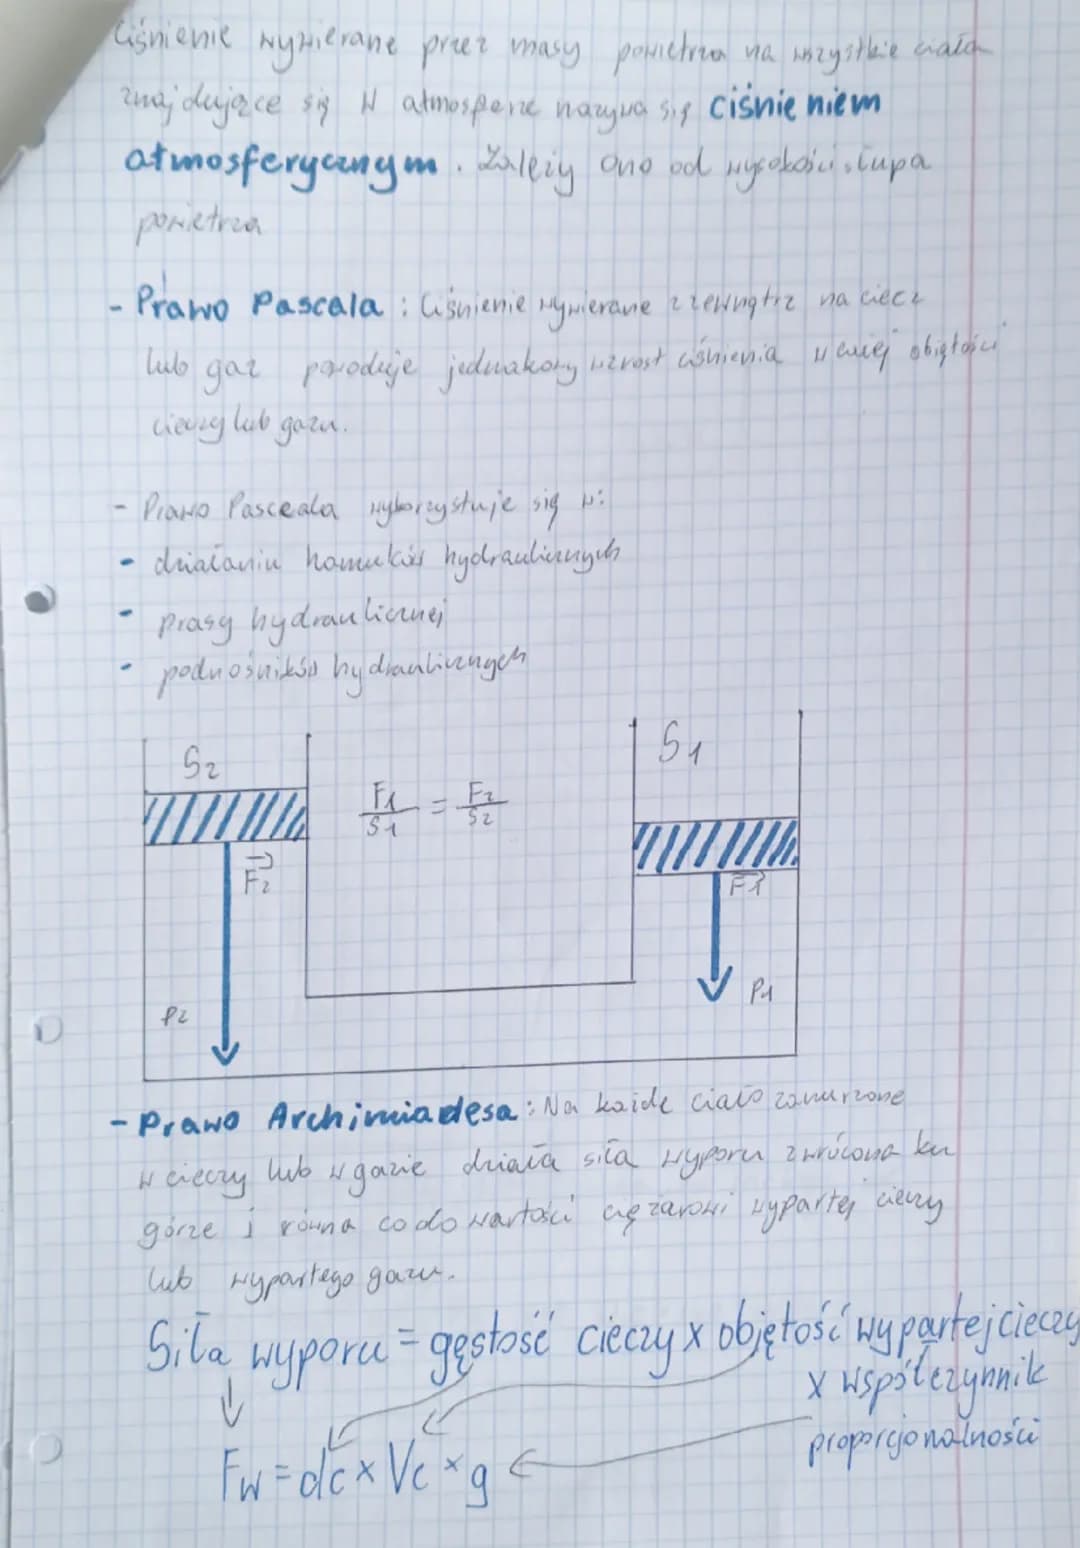 Ciśnienie wywierane przez masy powietrza na wszystkie ciała
znajdujące się w atmosferze nazywa się ciśnieniem
atmosferycznym. Zależy ono od wysokości słupa
powietrza
- Prawo Pascala: Ciśnienie wywierane z zewnątrz na ciecz
lub gaz powoduje jednakowy wzrost ciśnienia w całej objętości
cieczy lub gazu.
- Prawo Pasceala wykorzystuje się w:
• działaniu hamulców hydraulicznych
• prasy hydraulicznej
• podnośników hydraulicznych
S2
S1
F1/S1 = F2/S2
F2
F1
P2
P1
- Prawo Archimiadesa: Na każde ciało zanurzone
w cieczy lub w gazie działa siła wyporu zwrócona ku
górze i równa co do wartości ciężarowi wypartej cieczy
lub wypartego gazu.
Siła wyporu = gęstość cieczy x objętość wypartej cieczy
x współczynnik
proporcjonalności
Fw = dc x Vc x g